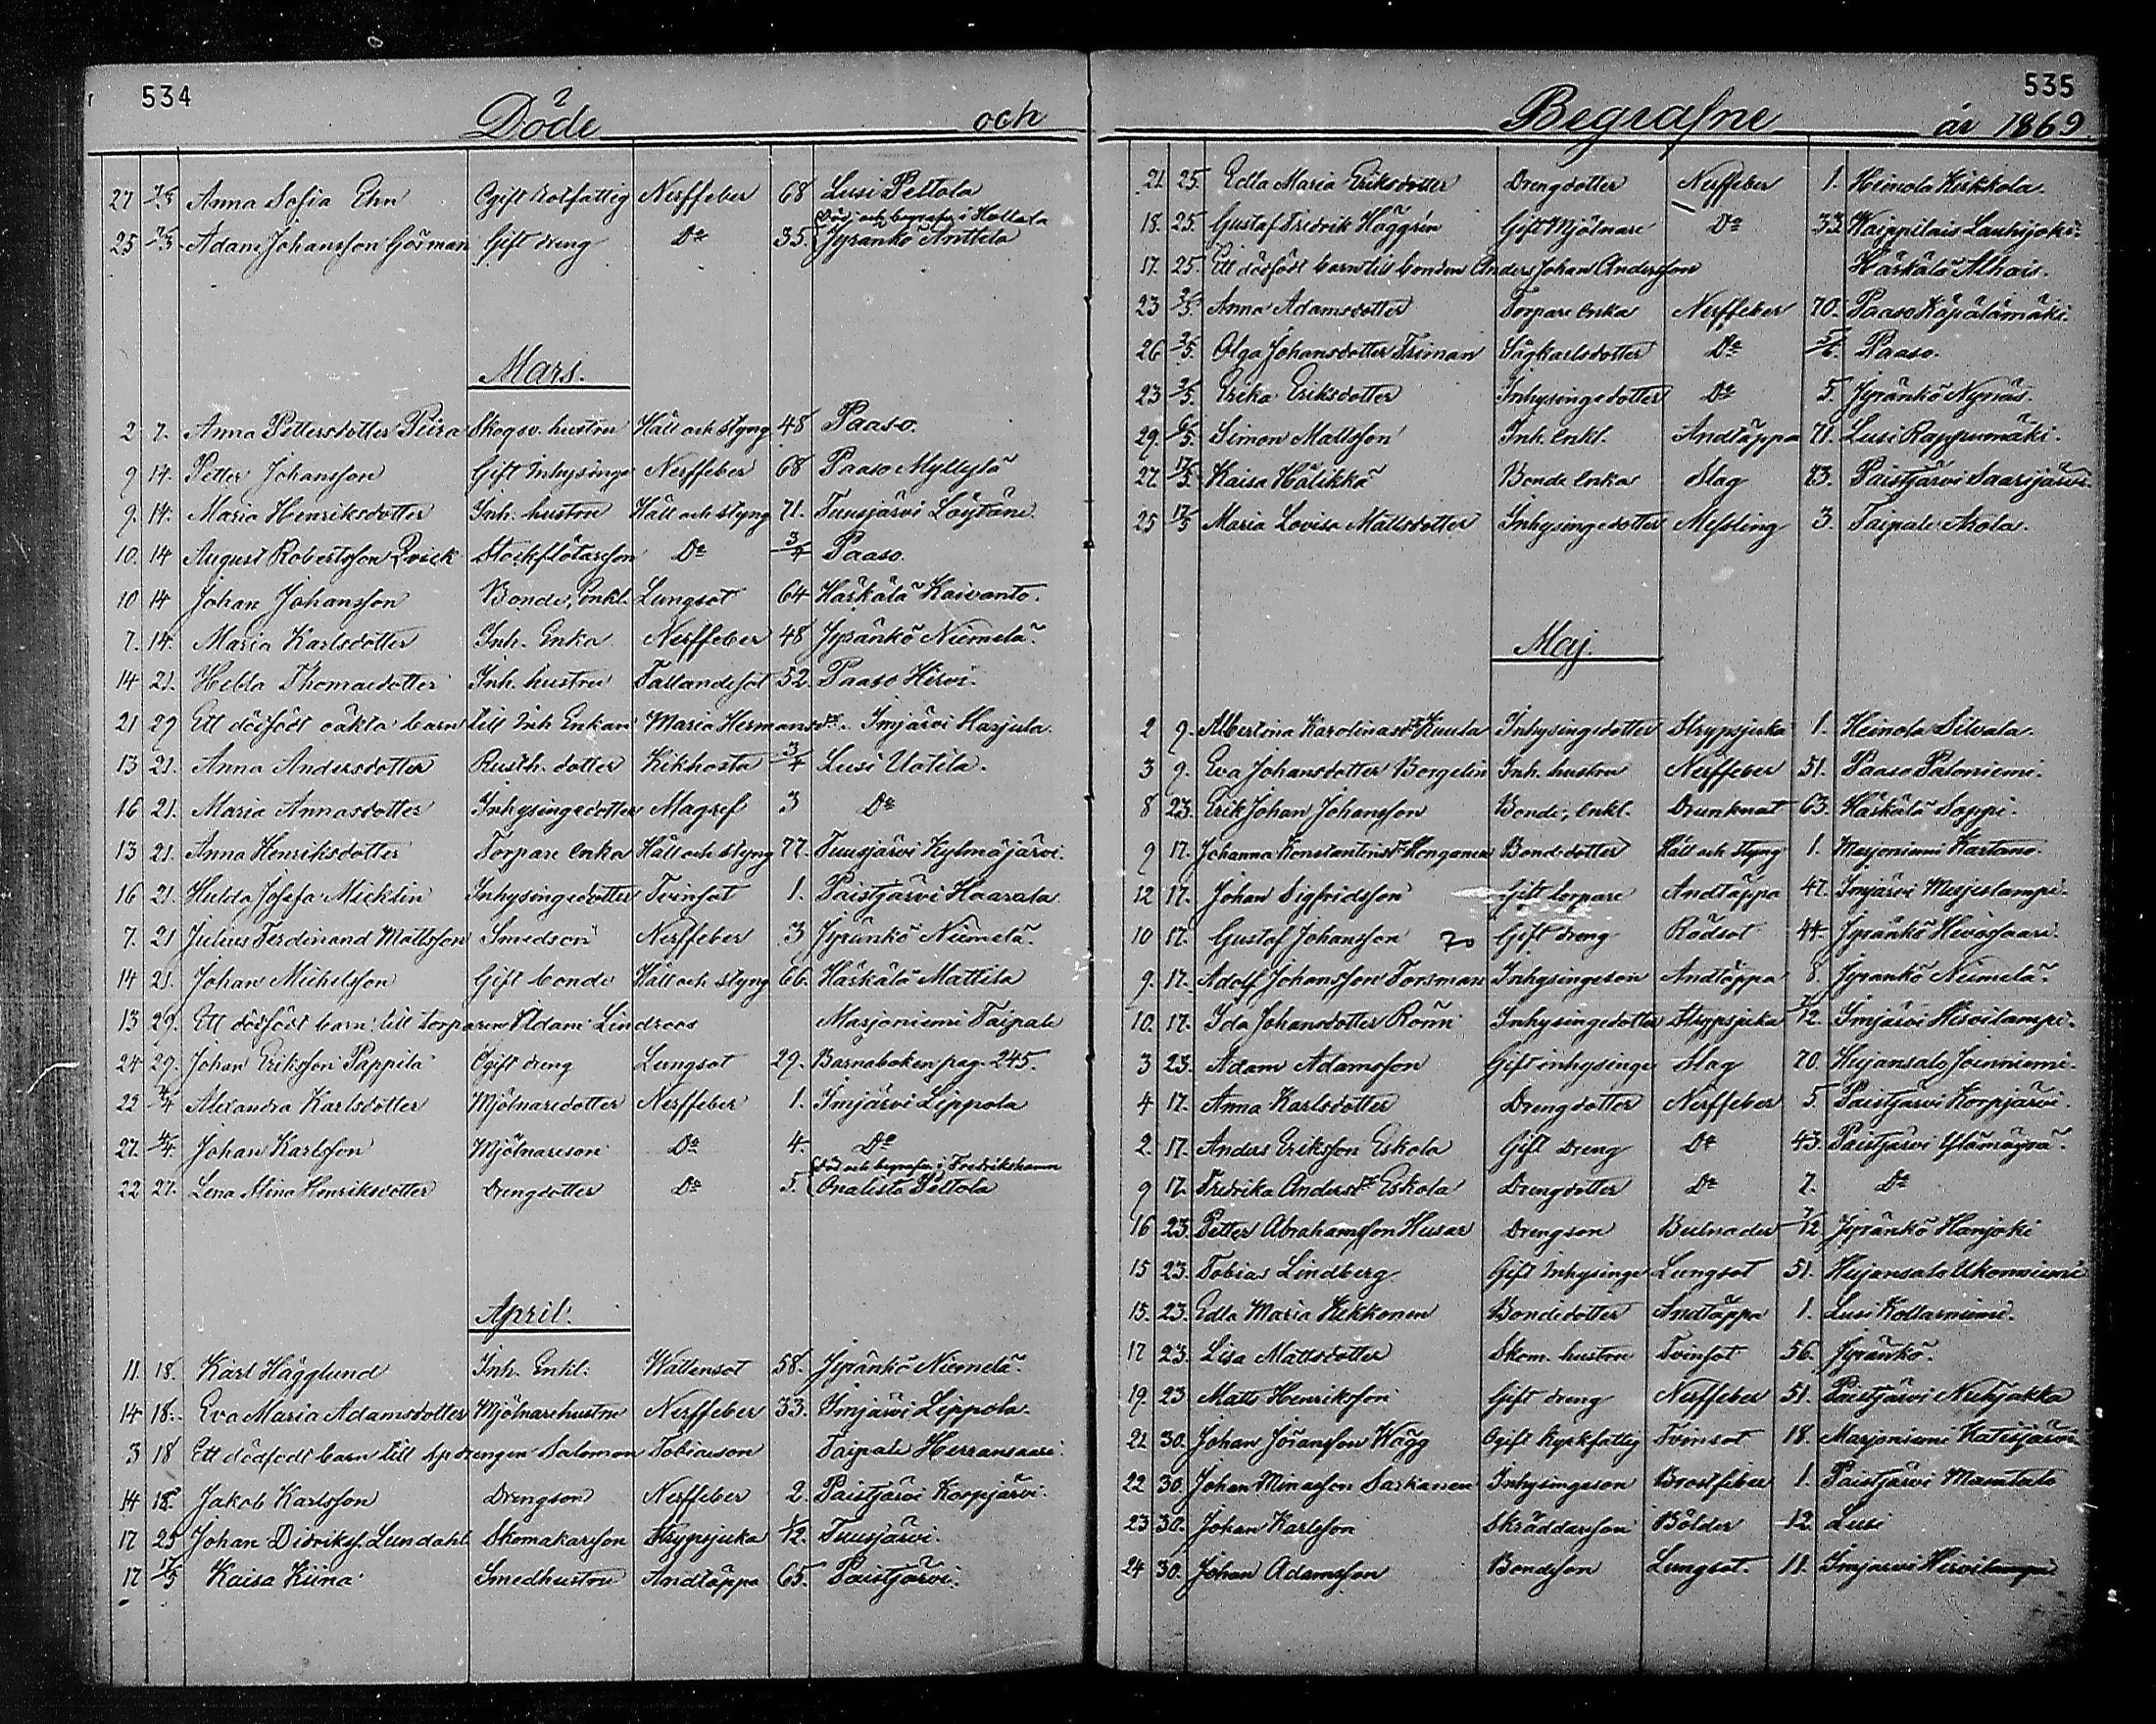 534
Döde och
27 7/3 Anna Sofia Ehn Ogift Rotfattig Nerffeber 68 Lusi Peltola
Död och begrafn i Hollola
25 7/3 Adam Johansson Görman Gift dreng Do 35. Jyränkö Anttila
Mars.
2 7. Anna Pettersdotter Piira Skogsv. hustru Håll och styng 48 Paaso.
9 14. Petter Johansson Gift Inhysinge Nerffeber 68 Paaso Myllylä
9. 14. Maria Henriksdotter Inh. hustru Håll och styng 71. Tuusjärvi Löytäne.
10. 14 August Robertsson Qvick Stockflötarsson Do 3/4 Paaso.
10 14 Johan Johansson Bonde, Enkl. Lungsot 64 Härkälä Kaivanto.
7. 14. Maria Karlsdotter Inh. Enka Nerffeber 48 Jyränkö Niemelä.
14 21. Hilda Thomasdotter Inh. hustru Fallandesot 52. Paaso Hirvi.
21 29 Ett dödfödt oäkta barn till Inh. Enkan Maria Hermansdr. Imjärvi Harjula.
13 21. Anna Andersdotter Rusth. dotter Kikhosta 3/4 Lusi Uotila.
16 21. Maria Annasdotter Inhysingedotter Magref 3 Do
13 21. Anna Henriksdotter Torpare Enka Håll och styng 77. Tuusjärvi Kylmäjärvi.
16 21. Hulda Josefa Micklin Inhysingedotter Tvinsot 1. Paistjärvi Haarala
7. 21 Julius Ferdinand Mattsson Smedson Nerffeber 3 Jyränkö Niemelä.
14 21. Johan Michelsson Gift bonde Håll och styng 66. Härkälä Mattila
13 29. Ett dödfödt barn till torparen Adam Lindroos Marjoniemi Taipale
24 29. Johan Eriksson Pappila Ogift dreng Lungsot 29. Barnaboken pag. 245.
22 4/4 Alexandra Karlsdotter Mjölnaredotter Nerffeber 1. Imjärvi Lippola
27. 4/4. Johan Karlsson Mjölnareson Do 4. Do
Död och begrafn i Fredrikshamn
22 27. Lena Stina Henriksdotter Drengdotter Do 5. Onalistö Peltola
April.
11. 18. Karl Hägglund Inh. Enkl. Wattensot 58. Jyränkö Niemelä.
14 18. Eva Maria Adamsdotter Mjölnarehustru Nerffeber 33. Imjärvi Lippola.
3 18 Ett dödfödt barn till Spdrengen Salomon Tobiasson Taipale Herransaari.
14 18. Jakob Karlsson Drengson Nerffeber 2. Paistjärvi Korpijärvi.
17 25 Johan Didriksf. Lundahl Skomakarsson Strypsjuka 1/12. Tuusjärvi.
17 17/5 Kaisa Kiina Smedhustru Andtäppa 65. Paistjärvi.
535
Begrafne år 1869.
21. 25. Edla Maria Eriksdotter Drengdotter Nerffeber 1. Heinola Kirkkola.
18. 25. Gustaf Fredrik Häggrén Gift Mjölnare Do 33. Waippilais Lauhijoki.
17. 25. Ett dödfödt barn till bonden Anders Johan Andersson Härkälä Alhais.
23 2/5. Anna Adamsdotter Torpare Enka Nerffeber 70. Paaso Käpälämäki.
26 2/5. Olga Johansdotter Friman Sågkarlsdotter Do 5/6. Paaso.
23 2/5. Erika Eriksdotter Inhysingedotter Do 5. Jyränkö Nynäs.
29. 6/5. Simon Mattsson Inh. Enkl. Andtäppa 71. Lusi Rappumäki.
27. 17/5. Kaisa Hälikkä Bonde Enka Slag 73. Paistjärvi Saarijärvi.
25 17/5 Maria Lovisa Mattsdotter Inhysingedotter Messling 3. Taipale Ahola.
Maj.
2 9. Albertina Karolinasdr Kuula Inhysingedotter Strypsjuka 1. Heinola Silvala.
3 9. Eva Johansdotter Borgelin Inh. hustru Nerffeber 51. Paaso Paloniemi.
8 23. Erik Johan Johansson Bonde, Enkl. Drunknat 63. Härkälä Soppi.
9 17. Johanna Konstantinsdr Honganen Bondedotter Håll och styng 1. Marjoniemi Kartano.
12 17. Johan Sigfridsson Gift torpare Andtäppa 47. Imjärvi Merjeslampi.
10 17. Gustaf Johansson 70 Gift dreng Rödsot 44. Jyränkö Hevossaari.
9. 17. Adolf Johansson Forsman Inhysingeson Andtäppa 8. Jyränkö Niemelä.
10. 17. Ida Johansdotter Rönn Inhysingedotter Strypsjuka 7/12. Imjärvi Hirvilampi.
3 23. Adam Adamsson Gift inhysinge Slag 70. Hujansalo Joinniemi.
4 17. Anna Karlsdotter Drengdotter Nerffeber 5. Paistjärvi Korpijärvi.
2. 17. Anders Eriksson Eskola Gift Dreng Do 43. Paistjärvi
9 17. Fredrika Andersdr Eskola Drengdotter Do 7. Do
16 23. Petter Abrahamsson Husar Drengson Bulnader 7/12 Jyränkö Hanjoki
15 23. Tobias Lindberg Gift Inhysinge Lungsot 51. Hujansalo Ukonniemi
15. 23. Edla Maria Kekkonen Bondedotter Andtäppa 1. Lusi Koltarniemi.
17 23. Lisa Mattsdotter Skom. hustru Tvinsot 56. Jyränkö.
19. 23 Matts Henriksson Gift dreng Nerffeber 51. Paistjärvi Niehjakka
21. 30. Johan Jöransson Wägg Ogift Kyrkfattig Tvinsot 18. Marjoniemi Katisjärvi
22 30. Johan Minasson Sarkanen Inhysingeson Bröstfeber 1. Paistjärvi Maintalo
23 30. Johan Karlsson Skräddarsson Bölder 12 Lusi
24 30. Johan Adamsson Bondeson Lungsot. 11. Imjärvi Hirvilampi